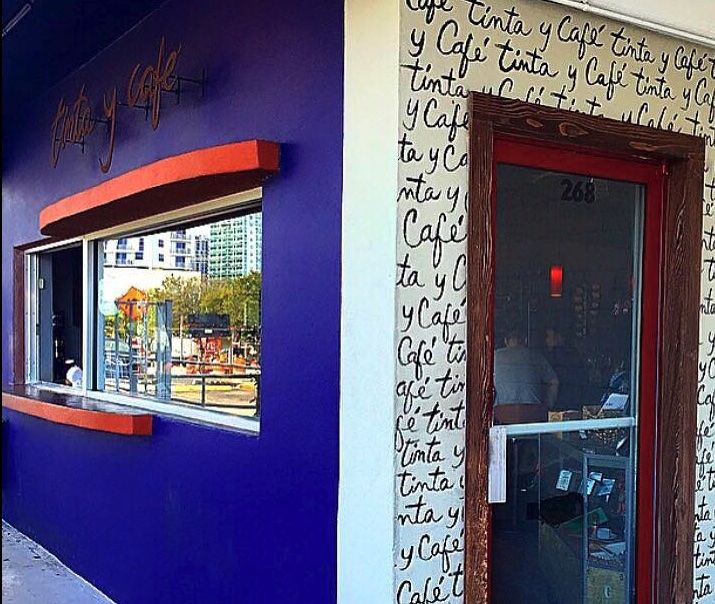 tinta y café
268
Café tinta y Café tinta y Café
y Café tinta y Café tinta y Caf
tinta y Café tinta y Café tin
y Café
ta y Ca
nta y
Café
ta y C
y Café
Café tin
afé tin
fé tint
tinta y
tinta y
nta y
y Café
Café t